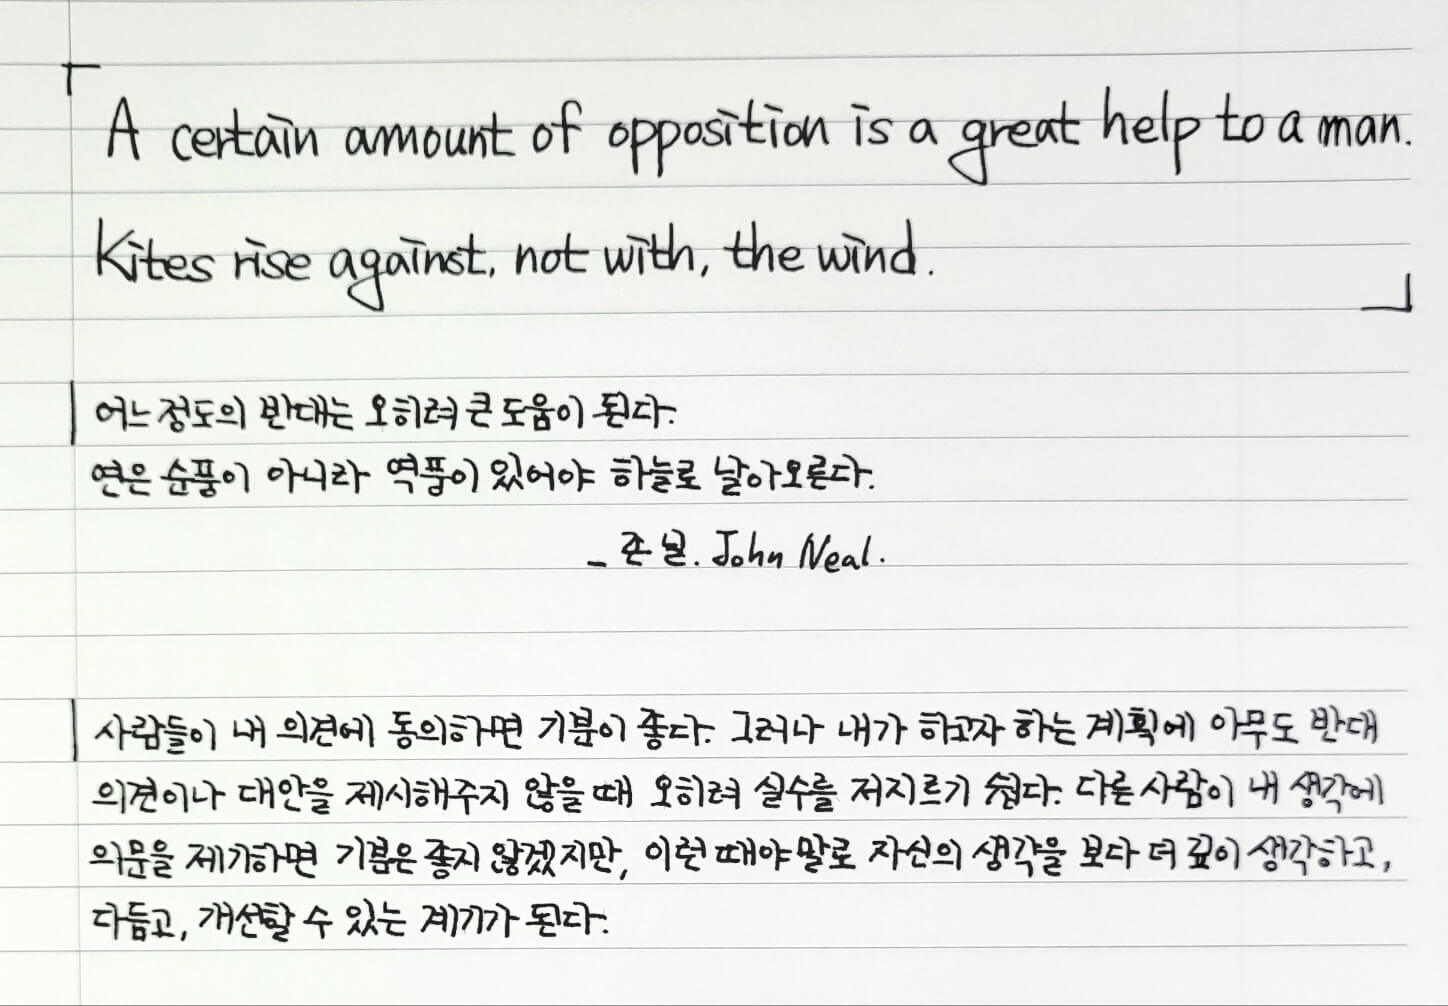 「A certain amount of opposition is a great help to a man.
Kites rise against, not with, the wind.」
어느 정도의 반대는 오히려 큰 도움이 된다.
연은 순풍이 아니라 역풍이 있어야 하늘로 날아오른다.
_ 존 닐. John Neal.
사람들이 내 의견에 동의하면 기분이 좋다. 그러나 내가 하고자 하는 계획에 아무도 반대
의견이나 대안을 제시해주지 않을 때 오히려 실수를 저지르기 쉽다. 다른 사람이 내 생각에
의문을 제기하면 기분은 좋지 않겠지만, 이런 때야 말로 자신의 생각을 보다 더 깊이 생각하고,
다듬고, 개선할 수 있는 계기가 된다.